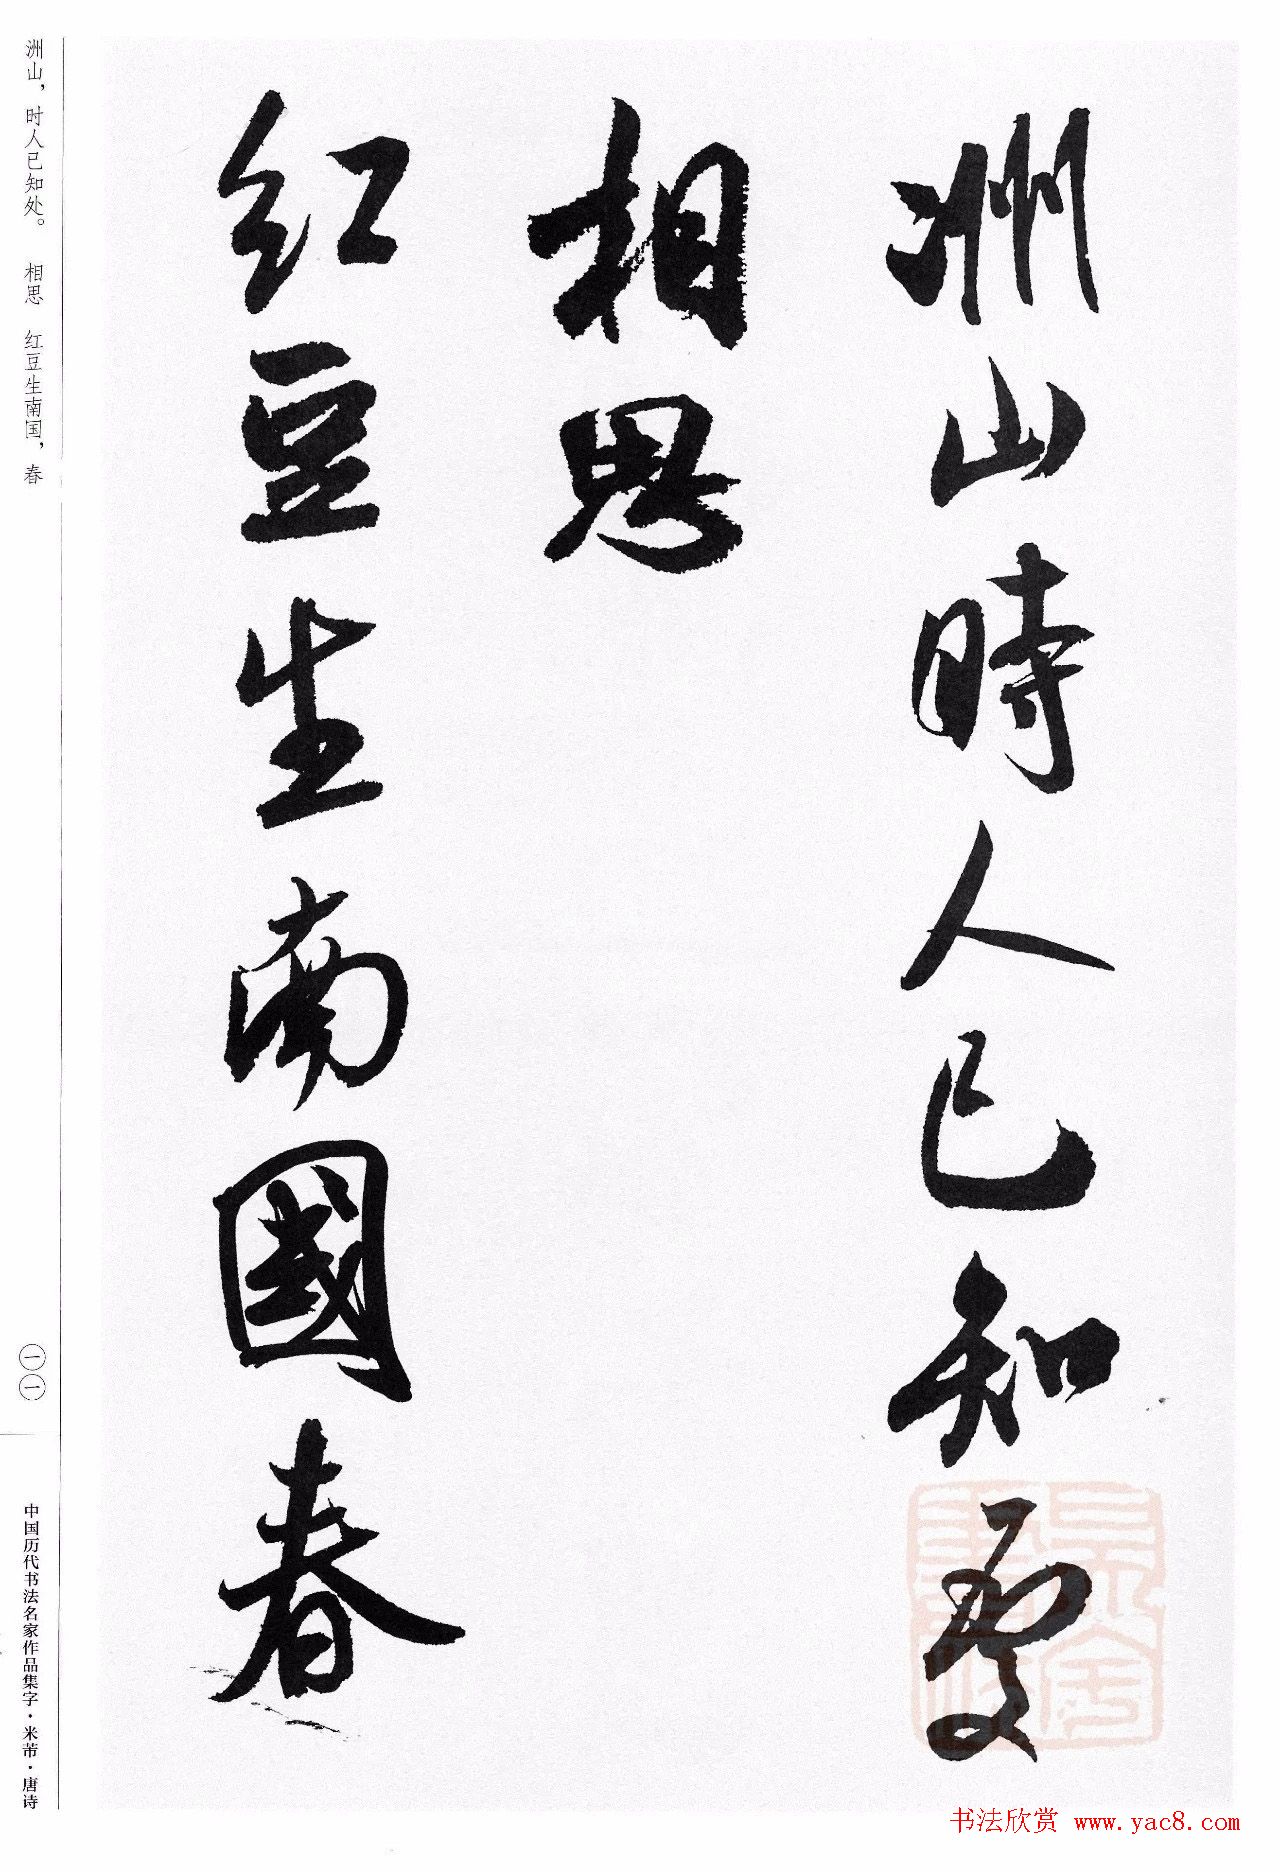 洲山時人已知處
相思
红豆生南國春
洲山，时人已知处。 相思 红豆生南国，春
一一
中国历代书法名家作品集字·米芾·唐诗
书法欣赏 www.yac8.com